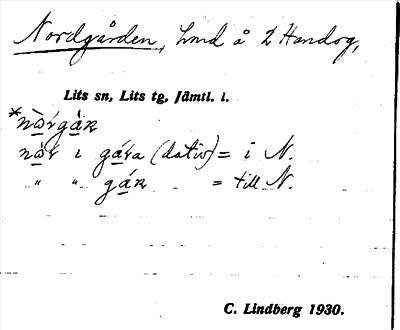 Nordgården, hmd å 2 Handog,
Lits sn, Lits tg, Jämtl. l.
nòr i gára (dativ) = i N.
" " gár = till N.
C. Lindberg 1930.